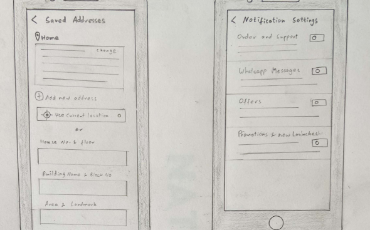 Saved Addresses
Home
Change
Add new address
Use current location
or
House No. & Floor
Building Name &
Area & Landmark
Notification Settings
Order and Support
Whatsapp Messages
Offers
Promotions & new launches